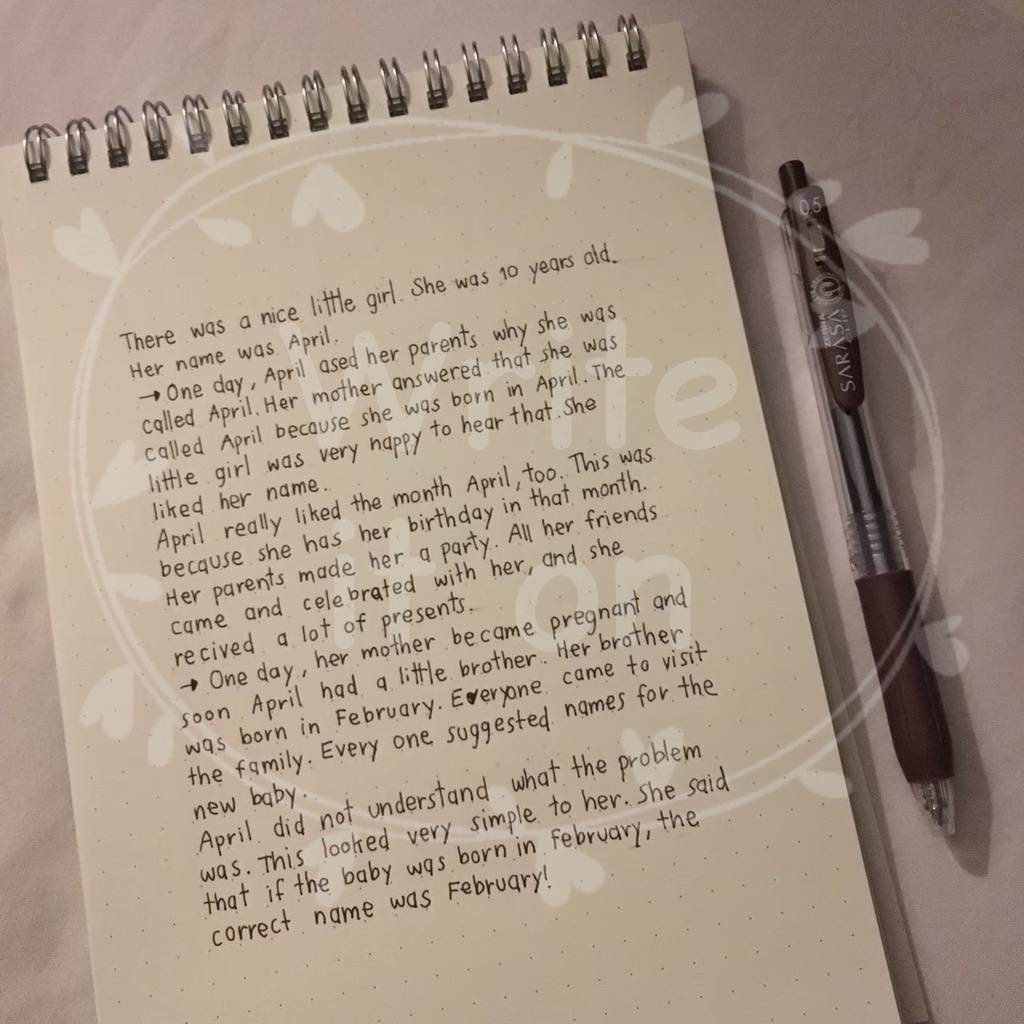 There was a nice little girl. She was 10 years old.
Her name was April.
→ One day, April ased her parents why she was
called April. Her mother answered that she was
called April because she was born in April. The
little girl was very happy to hear that. She
liked her name.
April really liked the month April, too. This was
because she has her birthday in that month.
Her parents made her a party. All her friends
came and celebrated with her, and she
recived a lot of presents.
→ One day, her mother became pregnant and
soon April had a little brother. Her brother
was born in February. Everyone came to visit
the family. Every one suggested names for the
new baby.
April did not understand what the problem
was. This looked very simple to her. She said
that if the baby was born in February, the
correct name was February!
Write
it on
0.5
SARASA
CLIP
ZEBRA